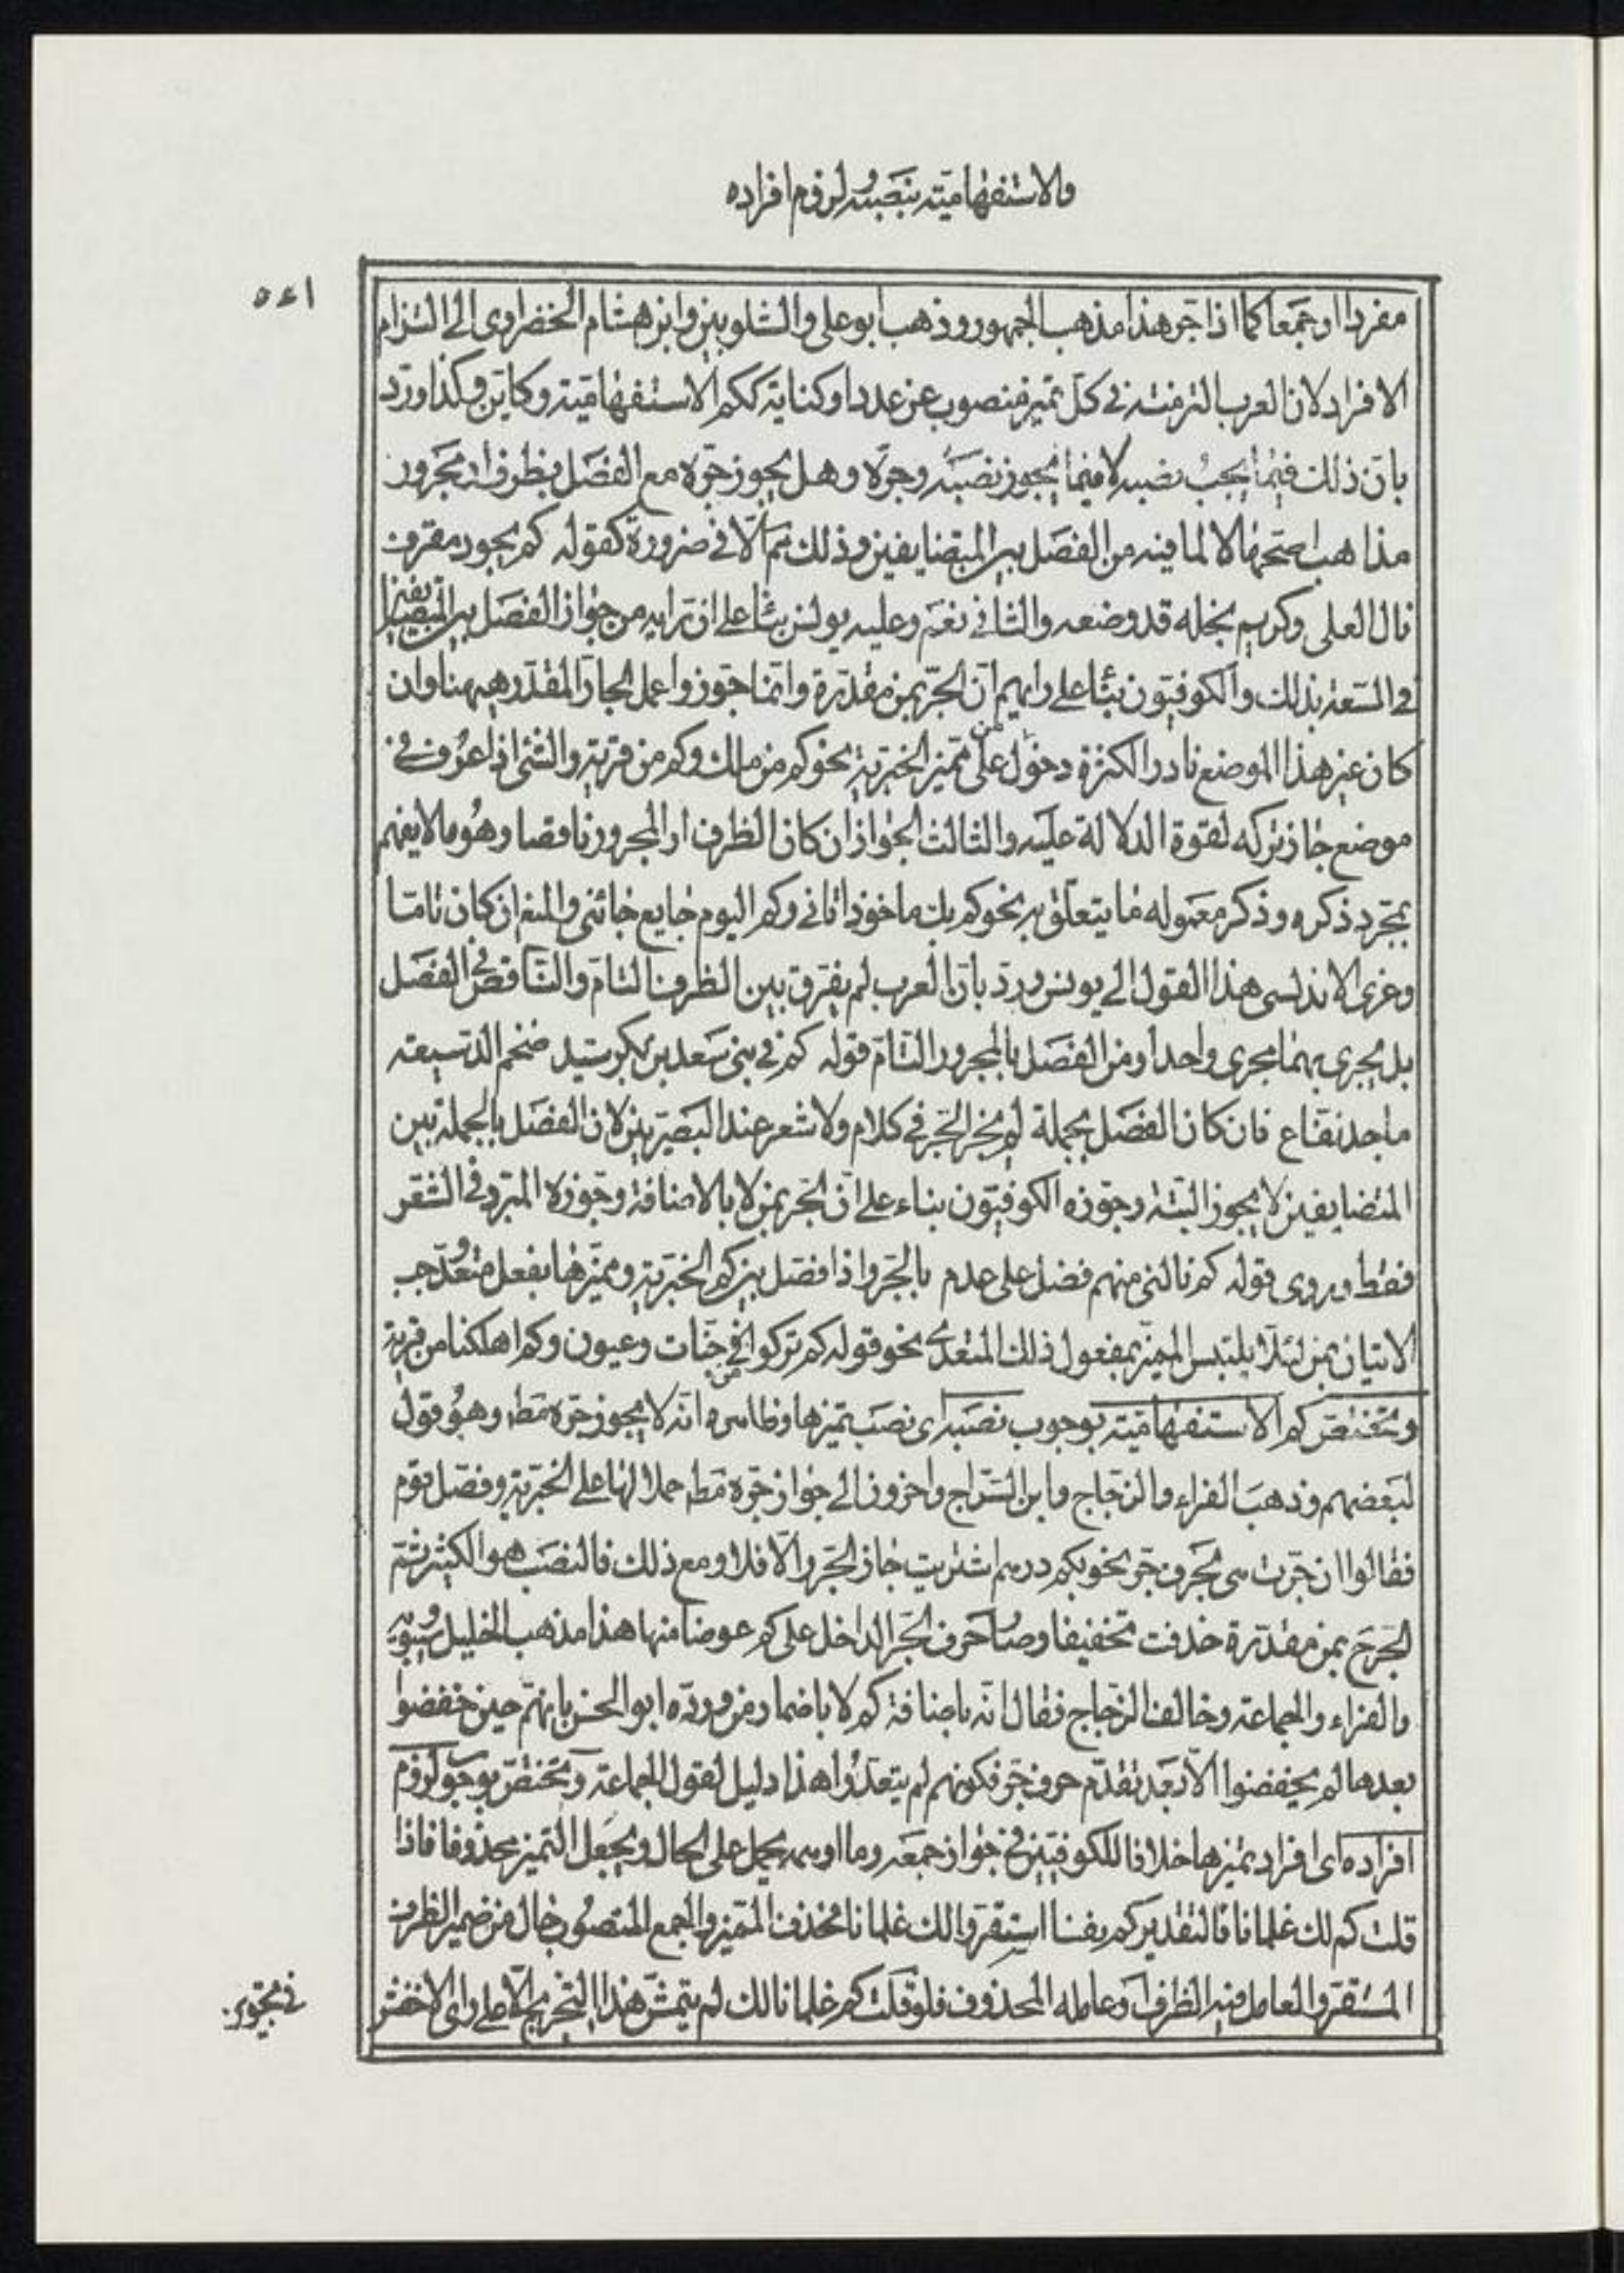 والاستفهامية بنصبه ولزوم افراده
٥٤١
مفردا او جمعا كما اذا جر هذا مذهب الجمهور وذهب ابو على والشلوبين وابن هشام الخضراوى الى التزام
الافراد لان العرب التزمته فى كل تميز منصوب عن عدد او كناية ككم الاستفهامية وكاين وكذا ورد
بان ذلك فيما يجب نصبه لا فيما يجوز نصبه وجره وهل يجوز جره مع الفصل بظرف او مجرور
مذاهب اصحها لا لما فيه من الفصل بين المتضايفين وذلك ثم الا فى ضرورة كقوله كم بجود مقرف
نال العلى وكريم بخله قد وضعه والثانى نعم وعليه يونس بناء على ان رايه من جواز الفصل بين المتضايفين
فى السعة بذلك والكوفيون بناء على رايهم ان الجر بمن مقدرة وانما جوزوا عمل الجار المقدر ههنا وان
كان غير هذا الموضع نادرا لكثرة دخول من على مميز الخبرية نحو كم من مالك وكم من قرية والشئ اذا عرف فى
موضع جاز تركه لقوة الدلالة عليه والثالث الجواز ان كان الظرف او المجرور ناقصا وهو ما لا يفهم
بمجرد ذكره وذكر معموله ما يتعلق به نحو كم بك ماخوذ اتانى وكم اليوم جايع جائنى والمنع ان كان تاما
وعزى الاندلسى هذا القول الى يونس ورد بان العرب لم يفرق بين الظرف التام والناقص فى الفصل
بل يجرى بهما مجرى واحدا ومن الفصل بالمجرور التام قوله كم فى بنى سعد بن بكر سيد ضخم الدسيعة
ماجد نفاع فان كان الفصل بجملة لم يجز الجر فى كلام ولا شعر عند البصريين لان الفصل بالجملة بين
المتضايفين لا يجوز البتة وجوزه الكوفيون بناء على ان الجر بمن لا بالاضافة وجوزه المبرد فى الشعر
فقط وروى قوله كم نالنى منهم فضل على عدم بالجر واذا فصل بين كم الخبرية ومميزها بفعل متعد وجب
الاتيان بمن لئلا يلتبس المميز بمفعول ذلك المتعدى نحو قوله كم تركوا من جنات وعيون وكم اهلكنا من قرية
وتختص كم الاستفهامية بوجوب نصبه اى نصب تميزها وظاهره انه لا يجوز جره قط وهو قول
لبعضهم وذهب الفراء والزجاج وابن السراج واخرون الى جواز جره قط حملا لها على الخبرية وفصل قوم
فقالوا ان جرت هى بحرف جر نحو بكم درهم اشتريت جاز الجر والا فلا ومع ذلك فالنصب هو الكثير ثم
الجر ح بمن مقدرة حذفت تخفيفا وصار حرف الجر الداخل على كم عوضا منها هذا مذهب الخليل وسيبويه
والفراء والجماعة وخالف الزجاج فقال انه باضافة كم لا باضمار من ورده ابو الحسن بانهم حين خفضوا
بعدها لم يخفضوا الا بعد تقدم حرف جر فكونهم لم يتعدوا هذا دليل لقول الجماعة وتختص بوجوب لزوم
افراده اى افراد تميزها خلافا للكوفيين فى جواز جمعه وما اوهمه يحمل على الحال ويجعل التميز محذوفا فاذا
قلت كم لك غلمانا فالتقدير كم نفسا استقروا لك غلمانا فحذف المميز والجمع المنصوب حال من ضمير الظرف
المستقر والعامل فيه الظرف وعامله المحذوف فلو قلت كم غلمانا لك لم يتمش هذا التخريج الا على راى الاخفش
فى تجويز